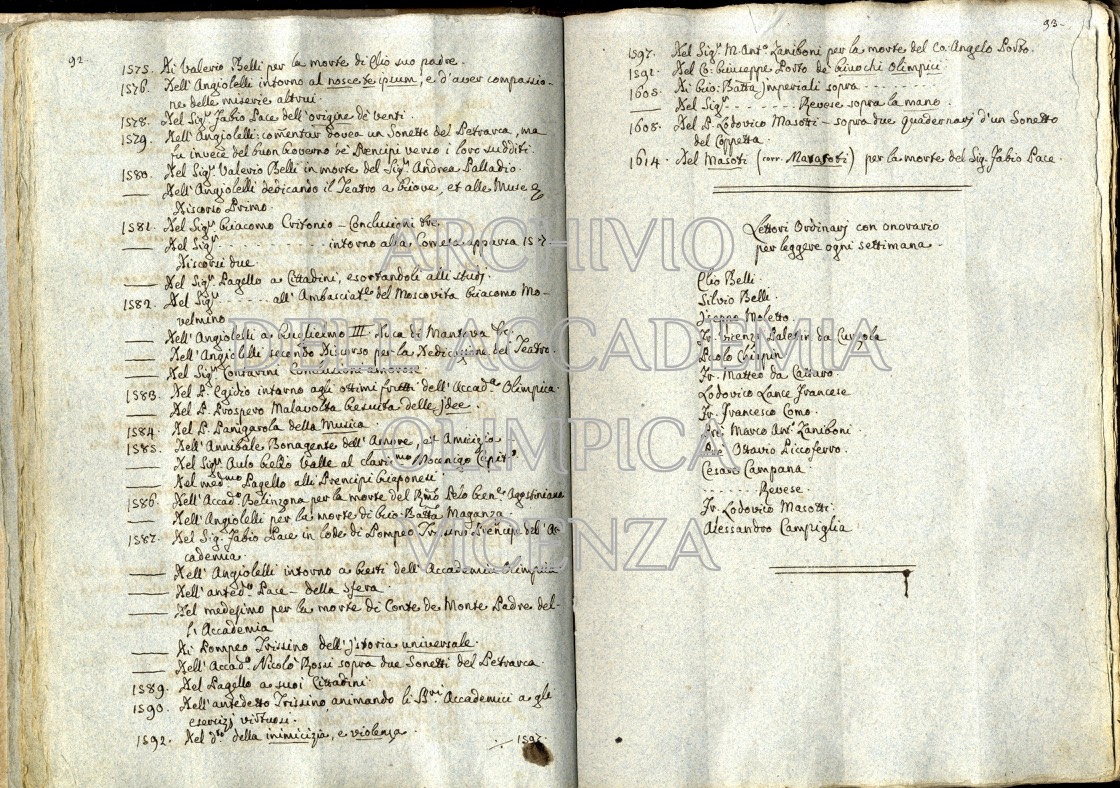 92.
1575. Di Valerio Belli per la morte di Elio suo padre.
1576. Dell'Angiolelli intorno al nosce te ipsum, e d'aver compassio-
ne delle miserie altrui.
1578. Del Sig.r Fabio Pace dell'origine de' venti.
1579. Dell'Angiolelli: comentar dovea un Sonetto del Petrarca, ma
fu invece del buon Governo de' Prencipi verso i loro sudditi.
1580. Del Sig.r Valerio Belli in morte del Sig.r Andrea Palladio.
Dell'Angiolelli dedicando il Teatro a Giove, et alle Muse
Discorso Primo.
1581. Del Sig.r Giacomo Critonio - Conclusioni
Del Sig.r - - - - - - intorno alla Cometa apparsa
Discorsi due.
Del Sig.r Pagello a Cittadini, esortandoli alli studj.
1582. Del Sig.r - - - - - all'Ambasciat.re del Moscovita Giacomo Mo-
velmino
Dell'Angiolelli a Guglielmo III. Duca di Mantova
Dell'Angiolelli secondo Discorso per la Dedicazione del Teatro.
Del Sig.r Contarini Conclusioni amorose
1583. Del P. Egidio intorno agli ottimi frutti dell'Accad.a Olimpica.
Del P. Prospero Malavolta Gesuita delle Idee.
1584. Del P. Panigarola della Musica
1585. Dell'Annibale Bonagente dell'Amore, et Amicizia
Del Sig.r Aulo Gellio Valle al clariss.mo Mocenigo
Del med.mo Pagello alli Prencipi Giaponesi
1586. Dell'Accad.o Belinzona per la morte del Agostiniano
Dell'Angiolelli per la morte di Gio: Batta Maganza.
1587. Del Sig.r Fabio Pace in lode di Pompeo Trissino Prencipe dell'Ac-
cademia.
Dell'Angiolelli intorno a Gesti dell'Accademia Olimpica
Dell'anted.o Pace - della sfera.
Del medesimo per la morte di Conte de Monte Padre del-
l'Accademia
Di Pompeo Trissino dell'Istoria universale.
Dell'Accad.o Nicolò Rossi sopra due Sonetti del Petrarca.
1589. Del Pagello a suoi Cittadini.
1590. Dell'antedetto Trissino animando li Accademici a gli
esercizj virtuosi.
1592. Del d.to della inimicizia, e violenza.
1597.
93.
1597. Del Sig.r M. Ant.o Zaniboni per la morte del Co: Angelo Porto.
1591. Del Co: Giuseppe Porto de' Giuochi Olimpici.
1605. Di Gio: Batta Imperiali sopra - - - - - -
Del Sig.r - - - - - - Revese sopra la mano.
1608. Del P. Lodovico Masotti - sopra due quadernarj d'un Sonetto
del Coppetta.
1614. Del Masoti (corr. Marafoti) per la morte del Sig. Fabio Pace.
Lettori Ordinarj con onorario
per leggere ogni settimana -
Elio Belli.
Silvio Belli.
Iseppo Moletto.
Fr. Vicenzo Paletin da Curzola
Paolo Chispin
Fr. Matteo da Cattaro.
Lodovico Lance Francese
Fr. Francesco Como.
Pre Marco Ant.o Zaniboni.
Pre Ottavio Piccoferro.
Cesare Campana.
- - - - - - Revese.
Fr. Lodovico Masotti.
Alessandro Campiglia
ARCHIVIO
DELL'ACCADEMIA
OLIMPICA
VICENZA